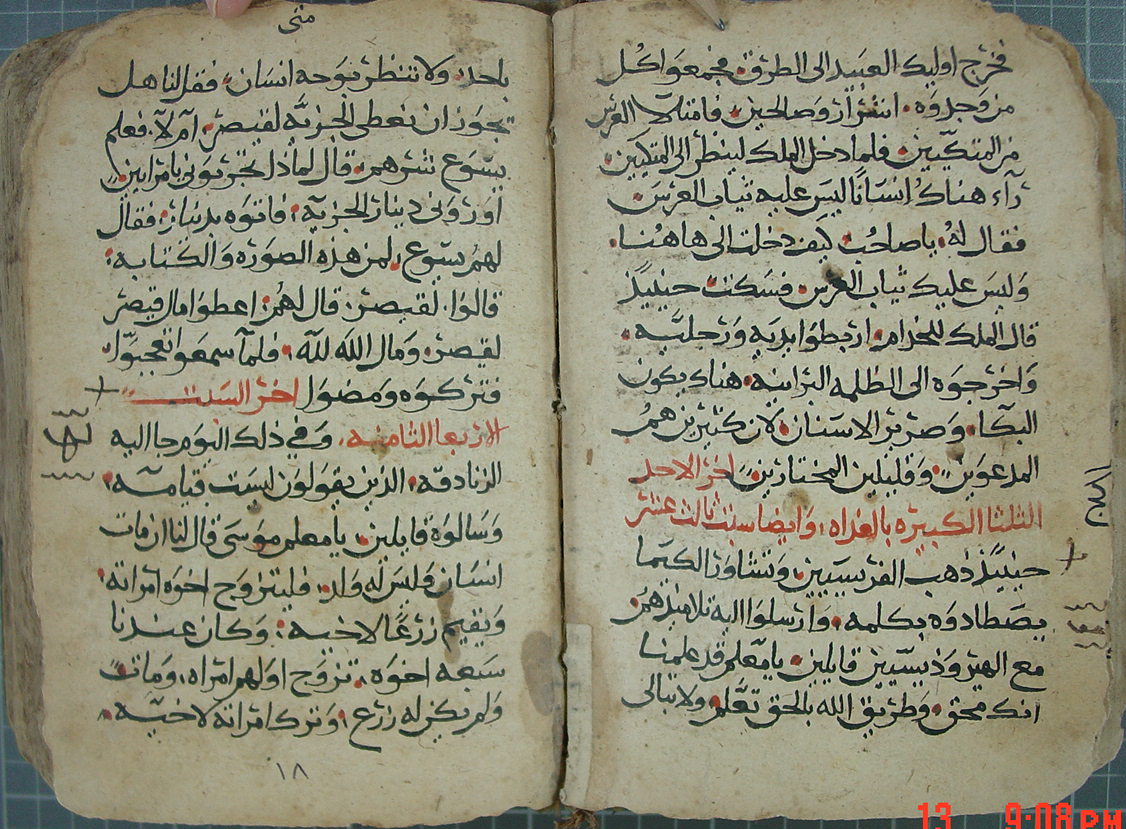 فخرج اوليك العبيد الى الطرق فجمعوا كل
من وجدوه اشرار وصالحين فامتلا العرس
من المتكيين فلما دخل الملك لينظر الى المتكيين
رآء هناك انسانًا ليس عليه تياب العرس
فقال له ياصاحب كيف دخلت الى هاهنا
وليس عليك تياب العرس فسكت حينيذ
قال الملك للخدام اربطوا يديه ورجليه
واخرجوه الى الظلمه البرانيه هناك يكون
البكاء وصرير الاسنان لان كثيرين هم
المدعوين وقليلين المختارين اخر الاحد
الثلثا الكبيره بالغداه وايضا سبت ثالث عشر
حينيذ ذهب الفريسيين وتشاوروا لكيما
يصطادوه بكلمه وارسلوا اليه تلاميذهم
مع الهيروديسيين قايلين يامعلم قد علمنا
انك محق وطريق الله بالحق تعلم ولا تبالي
متى
باحد ولا تنظر بوجه انسان فقل لنا هل
يجوز ان نعطي الجزيه لقيصر ام لا فعلم
يسوع شرهم قال لماذا تجربوني يامرايين
اوروني دينار الجزيه فاتوه بدينار فقال
لهم يسوع لمن هذه الصوره والكتابه
قالوا لقيصر قال لهم اعطوا مال قيصر
لقيصر ومال الله لله فلما سمعوا تعجبوا
فتركوه ومضوا اخر السبت
الاربعا الثامنه وفي ذلك اليوم جا اليه
الزنادقه الذين يقولون ليست قيامه
وسالوه قايلين يامعلم موسى قال لنا ان مات
انسان وليس له ولد فليتزوج اخوه امراته
ونقيم زرعًا لاخيه وكان عندنا
سبعه اخوه تزوج اولهم امراه ومات
ولم يكن له زرع وترك امراته لاخيه
١٨